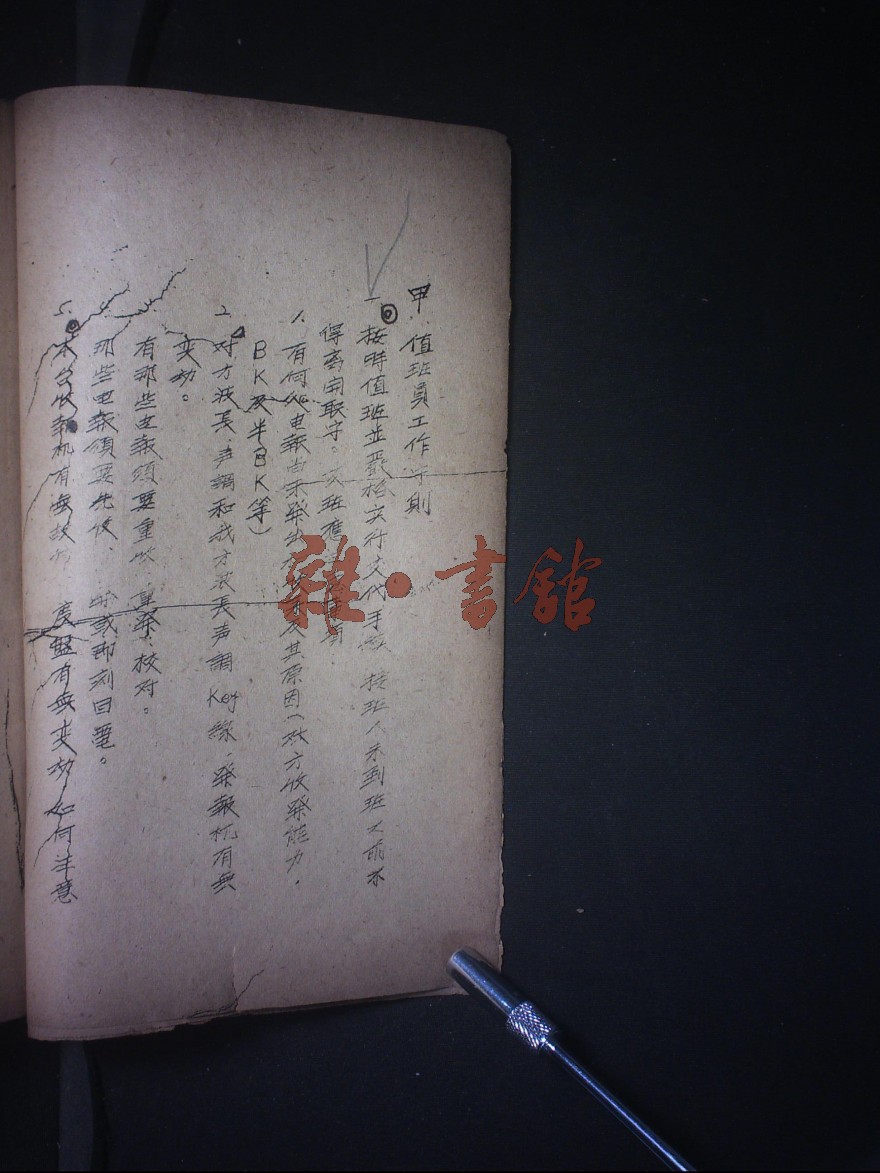 甲、值班員工作守則
一、按時值班並嚴格实行交代手 接班人未到班之前不
得离開职守。交班應
1. 有何人电報尚未發出 及其原因（对方收發能力、
BK及半BK等）
2. 对方波長、声調和我方波長声調 Key綠、發報机有無
变动。
有那些电報須要重收、重發、校对。
那些电報須要先收、 或即刻回電。
5. 本台收報机有無故 度盤有無变动 如何注意
雜·書館